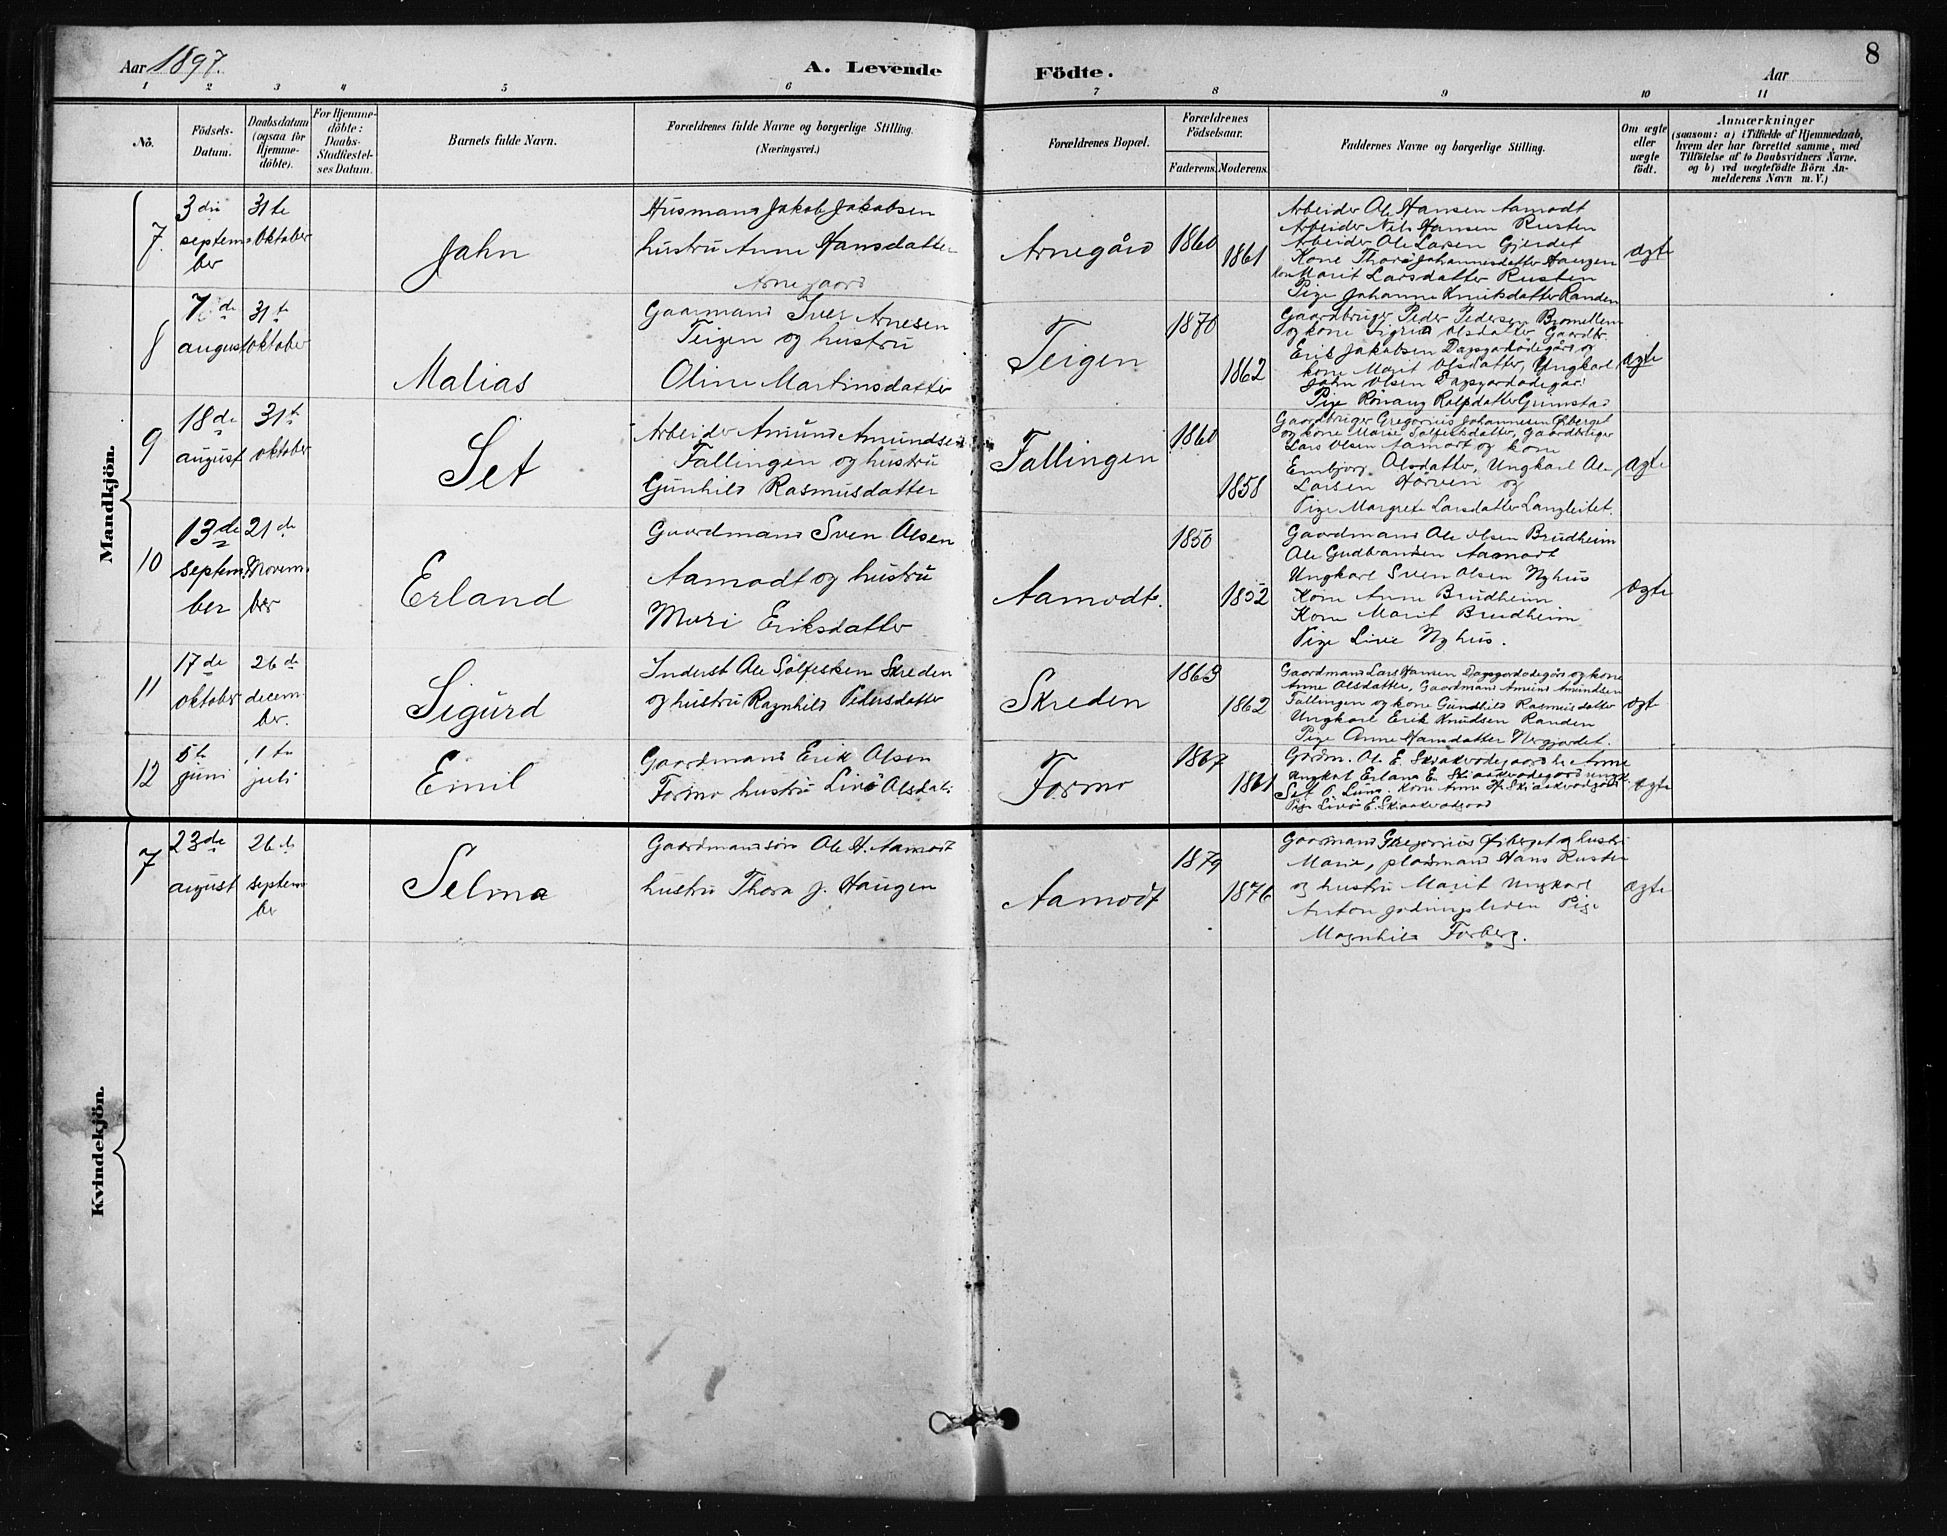 Aar 1897.
A. Levende
Födte.
Aar
8
1 2 3 4 5 6 7 8 9 10 11
No.
Födsels-
Datum.
Daabsdatum
(ogsaa for
Hjemme-
döbte).
For Hjemme-
döbte:
Daabs-
Stadfæstel-
ses Datum.
Barnets fulde Navn.
Forældrenes fulde Navne og borgerlige Stilling.
(Næringsvei.)
Forældrenes Bopæl.
Forældrenes
Födselsaar.
Faderens.
Moderens.
Faddernes Navne og borgerlige Stilling.
Om ægte
eller
uægte
födt.
Anmærkninger
(saasom: a) i Tilfælde af Hjemmedaab,
hvem der har forrettet samme, med
Tilföielse af to Daabsvidners Navne.
og b) ved uægtefödte Börn An-
melderens Navn m. V.)
Mandkjön.
7.
3die
septem
ber
31te
Oktober
Jahn
Husmand Jakob Jakobsen
hustru Anne Hansdatter
Arnegaard
Arnegård
1860
1861
Arbeider Ole Hansen Aamodt
Arbeider Nils Hansen Rusten
Arbeider Ole Larsen Gjerdet
Kone Thore Johannesdatter Haugen
kone Marit Larsdatter Rusten
Pige Johanne Knutsdatter Randen
ægte
8
7de
august
31te
oktober
Malias
Gaarmand Iver Arnesen
Teigen og hustru
Oline Martinsdatter
Teigen
1870
1862
Gaardbruger Peder Pedersen
og kone Sigrid Olsdatter, Gaardbr.
Erik Jakobsen
kone Marit Olsdatter, Ungkarl
John Olsen
Pige Rønnaug Grimstad
ægte
9
18de
august
31te
oktober
Set
Arbeider Amund Amundsen
Fallingen og hustru
Gunhild Rasmusdatter
Fallingen
1860
1858
Gaardbruger Gregorius Johannesen Øiberget
og kone Marie Sølfestsdatter, Gaardbruger
Lars Olsen Aamodt og kone
Embjørg Olsdatter, Ungkarl Ole
Larsen Hørven og
Pige Margrete Larsdatter Langleitet.
Ægte
10
13de
septem
ber
21de
Novem
ber
Erland
Gaardmand Sven Olsen
Aamodt og hustru
Mari Eriksdatter
Aamodt.
1850
1852
Gaardmand Ole Olsen Brudheim
Ole Gudbrandsen Aamodt
Ungkarl Sven Olsen Nyhus
Kone Anne Brudheim
Kone Marit Brudheim
Pige Live Nyhus.
Ægte
11
17de
oktober
26de
decem
ber.
Sigurd
Inderst Ole Sølfestsen Skreden
og hustru Ragnhild Pedersdatter
Skreden
1863
1862
Gaardmand Lars Hansen og kone
Anne Olsdatter, Gaardmand Amund Amundsen
Fallingen og kone Gunhild Rasmusdatter
Ungkarl Erik Knudsen Randen
Pige Anne Hansdatter
ægte
12
5te
juni
1te
juli
Emil
Gaardmand Erik Olsen
Formo hustru Livø Olsdatr
Formo
1867
1861
Gårdm. Ole E. Skjaakvodegaard
Ungkal Erland E. Skjaakvodegaard
Set P. Lund. Kone Anne H. Skjaakvodegård
Pige Livø E. Skjaakvodgaard
ægte
Kvindekjön.
7
23de
august
26de
septem
ber
Selma
Gaardmandssøn Ole H. Aamodt
hustru Thora J. Haugen
Aamodt
1879
1876
Gaarmand Gregorius Øiberget og hustru
Marie, pladsmand Hans Rusten
og hustru Marit Ungkarl
Anton Pige
Magnhild Forberg.
Ægte